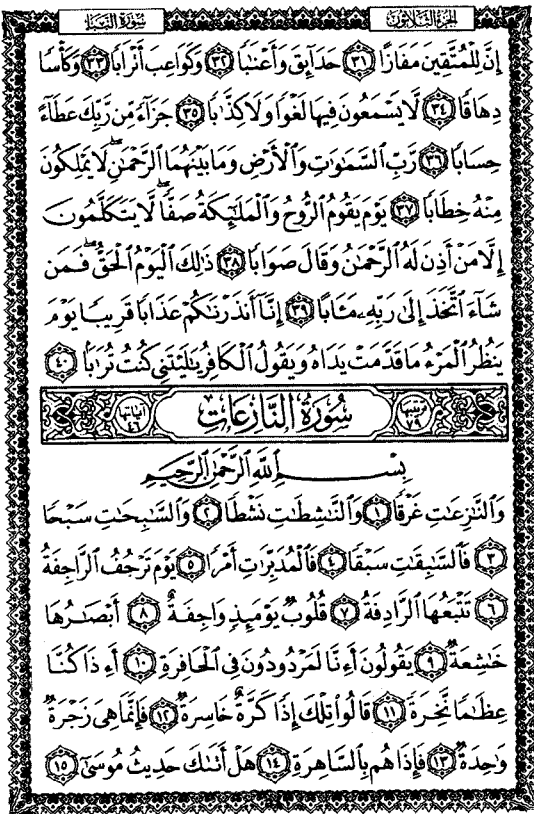 الجزء الثلاثون
سورة النبإ
إِنَّ لِلْمُتَّقِينَ مَفَازًا ٣١ حَدَآئِقَ وَأَعْنَٰبًا ٣٢ وَكَوَاعِبَ أَتْرَابًا ٣٣ وَكَأْسًا
دِهَاقًا ٣٤ لَّا يَسْمَعُونَ فِيهَا لَغْوًا وَلَا كِذَّٰبًا ٣٥ جَزَآءً مِّن رَّبِّكَ عَطَآءً
حِسَابًا ٣٦ رَّبِّ ٱلسَّمَٰوَٰتِ وَٱلْأَرْضِ وَمَا بَيْنَهُمَا ٱلرَّحْمَٰنِۖ لَا يَمْلِكُونَ
مِنْهُ خِطَابًا ٣٧ يَوْمَ يَقُومُ ٱلرُّوحُ وَٱلْمَلَٰٓئِكَةُ صَفًّاۖ لَّا يَتَكَلَّمُونَ
إِلَّا مَنْ أَذِنَ لَهُ ٱلرَّحْمَٰنُ وَقَالَ صَوَابًا ٣٨ ذَٰلِكَ ٱلْيَوْمُ ٱلْحَقُّۖ فَمَن
شَآءَ ٱتَّخَذَ إِلَىٰ رَبِّهِۦ مَـَٔابًا ٣٩ إِنَّآ أَنذَرْنَٰكُمْ عَذَابًا قَرِيبًا يَوْمَ
يَنظُرُ ٱلْمَرْءُ مَا قَدَّمَتْ يَدَاهُ وَيَقُولُ ٱلْكَافِرُ يَٰلَيْتَنِى كُنتُ تُرَٰبًا ٤٠
ترتيبها ٧٩ سُورَةُ النَّازِعَاتِ آياتها ٤٦
بِسْمِ ٱللَّهِ ٱلرَّحْمَٰنِ ٱلرَّحِيمِ
وَٱلنَّٰزِعَٰتِ غَرْقًا ١ وَٱلنَّٰشِطَٰتِ نَشْطًا ٢ وَٱلسَّٰبِحَٰتِ سَبْحًا
٣ فَٱلسَّٰبِقَٰتِ سَبْقًا ٤ فَٱلْمُدَبِّرَٰتِ أَمْرًا ٥ يَوْمَ تَرْجُفُ ٱلرَّاجِفَةُ
٦ تَتْبَعُهَا ٱلرَّادِفَةُ ٧ قُلُوبٌ يَوْمَئِذٍ وَاجِفَةٌ ٨ أَبْصَٰرُهَا
خَٰشِعَةٌ ٩ يَقُولُونَ أَءِنَّا لَمَرْدُودُونَ فِى ٱلْحَافِرَةِ ١٠ أَءِذَا كُنَّا
عِظَٰمًا نَّخِرَةً ١١ قَالُوا۟ تِلْكَ إِذًا كَرَّةٌ خَاسِرَةٌ ١٢ فَإِنَّمَا هِىَ زَجْرَةٌ
وَٰحِدَةٌ ١٣ فَإِذَا هُم بِٱلسَّاهِرَةِ ١٤ هَلْ أَتَىٰكَ حَدِيثُ مُوسَىٰٓ ١٥